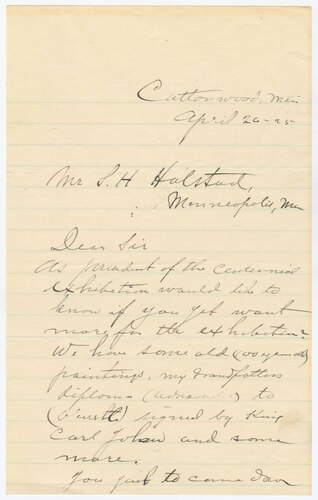 Cottonwood, Min
April 26-25
Mr S. H Holstad,
Minneopolis, Min
Dear Sir
As president of the centennial
exhibetion would like to
know if you yet want
more for the exhibetion?
We have some old (100 years old)
paintings, my Grandfathers
diploma to
signed by King
Carl Johan and some
more.
You to come down